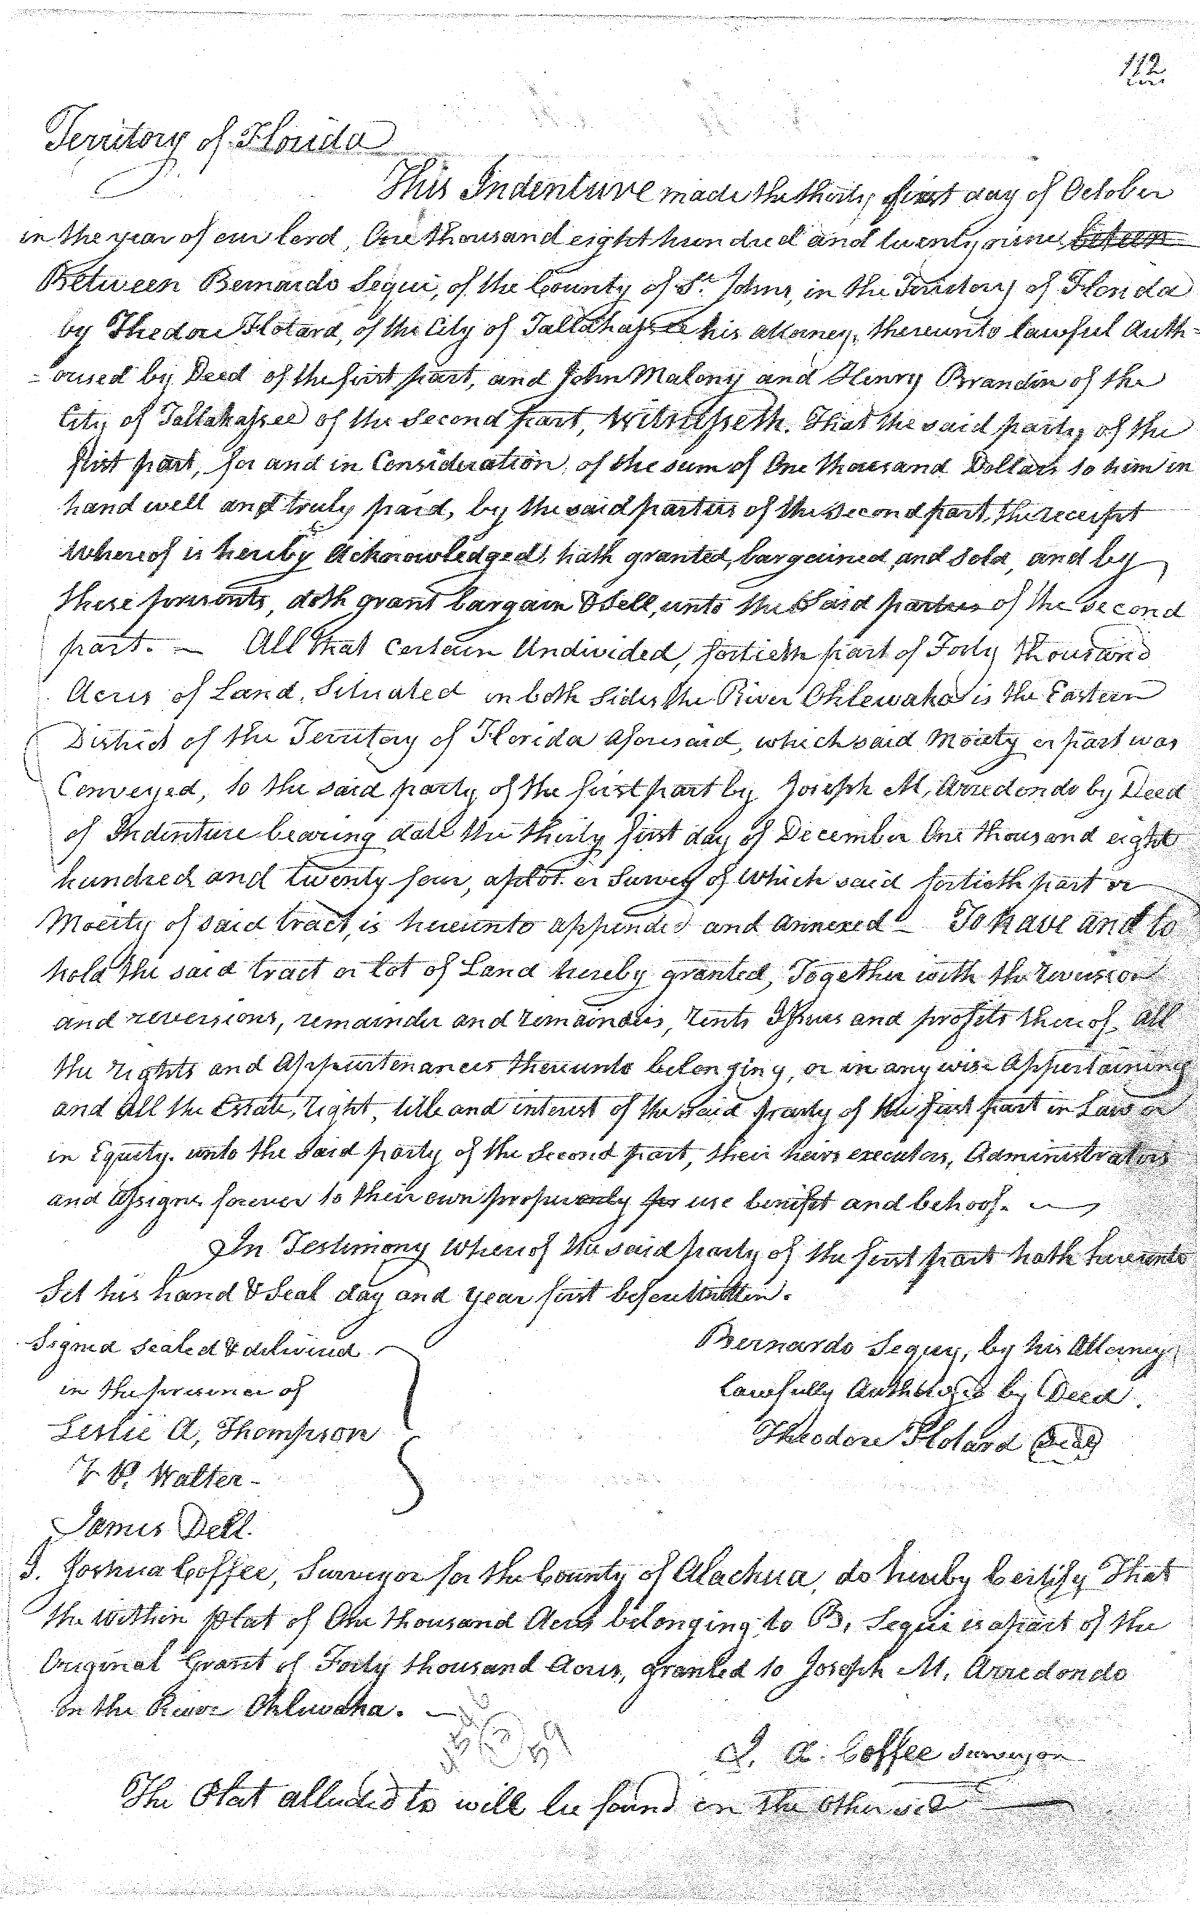 112
Territory of Florida
This Indenture made the thirty first day of October
in the year of our lord, One thousand eight hundred and twenty nine beteen
Between Bernardo Segui, of the County of St. Johns, in the Territory of Florida
by Thedore Flotard, of the City of Tallahassee his attorney, thereunto lawful Auth=
=orised by Deed of the first part, and John Malony and Henry Brandin of the
City of Tallahassee of the second part, Witnesseth. That the said party of the
first part, for and in Consideration, of the sum of One thousand Dollars to him in
hand well and truly paid, by the said parties of the second part, the receipt
whereof is hereby Acknowledged, hath granted, bargained, and sold, and by
these presents, doth grant bargain & sell, unto the said parties of the second
part. — All that Certain Undivided, fortieth part of Forty thousand
Acres of Land, Situated in both Sides the River Ohlewaha is the Eastern
District of the Territory of Florida aforesaid, which said Moiety or part was
Conveyed, to the said party of the first part by Joseph M, Arredondo by Deed
of Indenture bearing date the thirty first day of December One thousand eight
hundred and twenty four, a plot or Survey of which said fortieth part or
Moeity of said tract, is hereunto appended and annexed — To have and to
hold the said tract or lot of Land hereby granted, Together with the revision
and reversions, remainder and remainders, rents Issues and profits thereof, all
the rights and Appurtenances thereunto belonging, or in any wise Appertaining
and all the Estate, right, title and interest of the said party of the first part in Law or
in Equity. unto the said party of the second part, their heirs executors, Administrators
and assigns forever to their own proper only for use benifit and behoof. —
In Testimony whereof the said party of the first part hath hereunto
Set his hand & Seal day and year first before Written.
Signed sealed & delivired
in the presence of
Leslie A, Thompson
T. P. Walter –
James Dell.
Bernardo Seguy, by his Attorney
lawfully Authorized by Deed.
Theodore Flotard Seal
I. Joshua Coffee, Surveyor for the County of Alachua, do hereby Certify That
the within plat of One thousand Acres belonging to B, Segui is a part of the
Original Grant of Forty thousand Acres, granted to Joseph M, Arredondo
on the River Ohlewaha. —
J. A. Coffee surveyor
The Plat alluded to will be found on the other side —